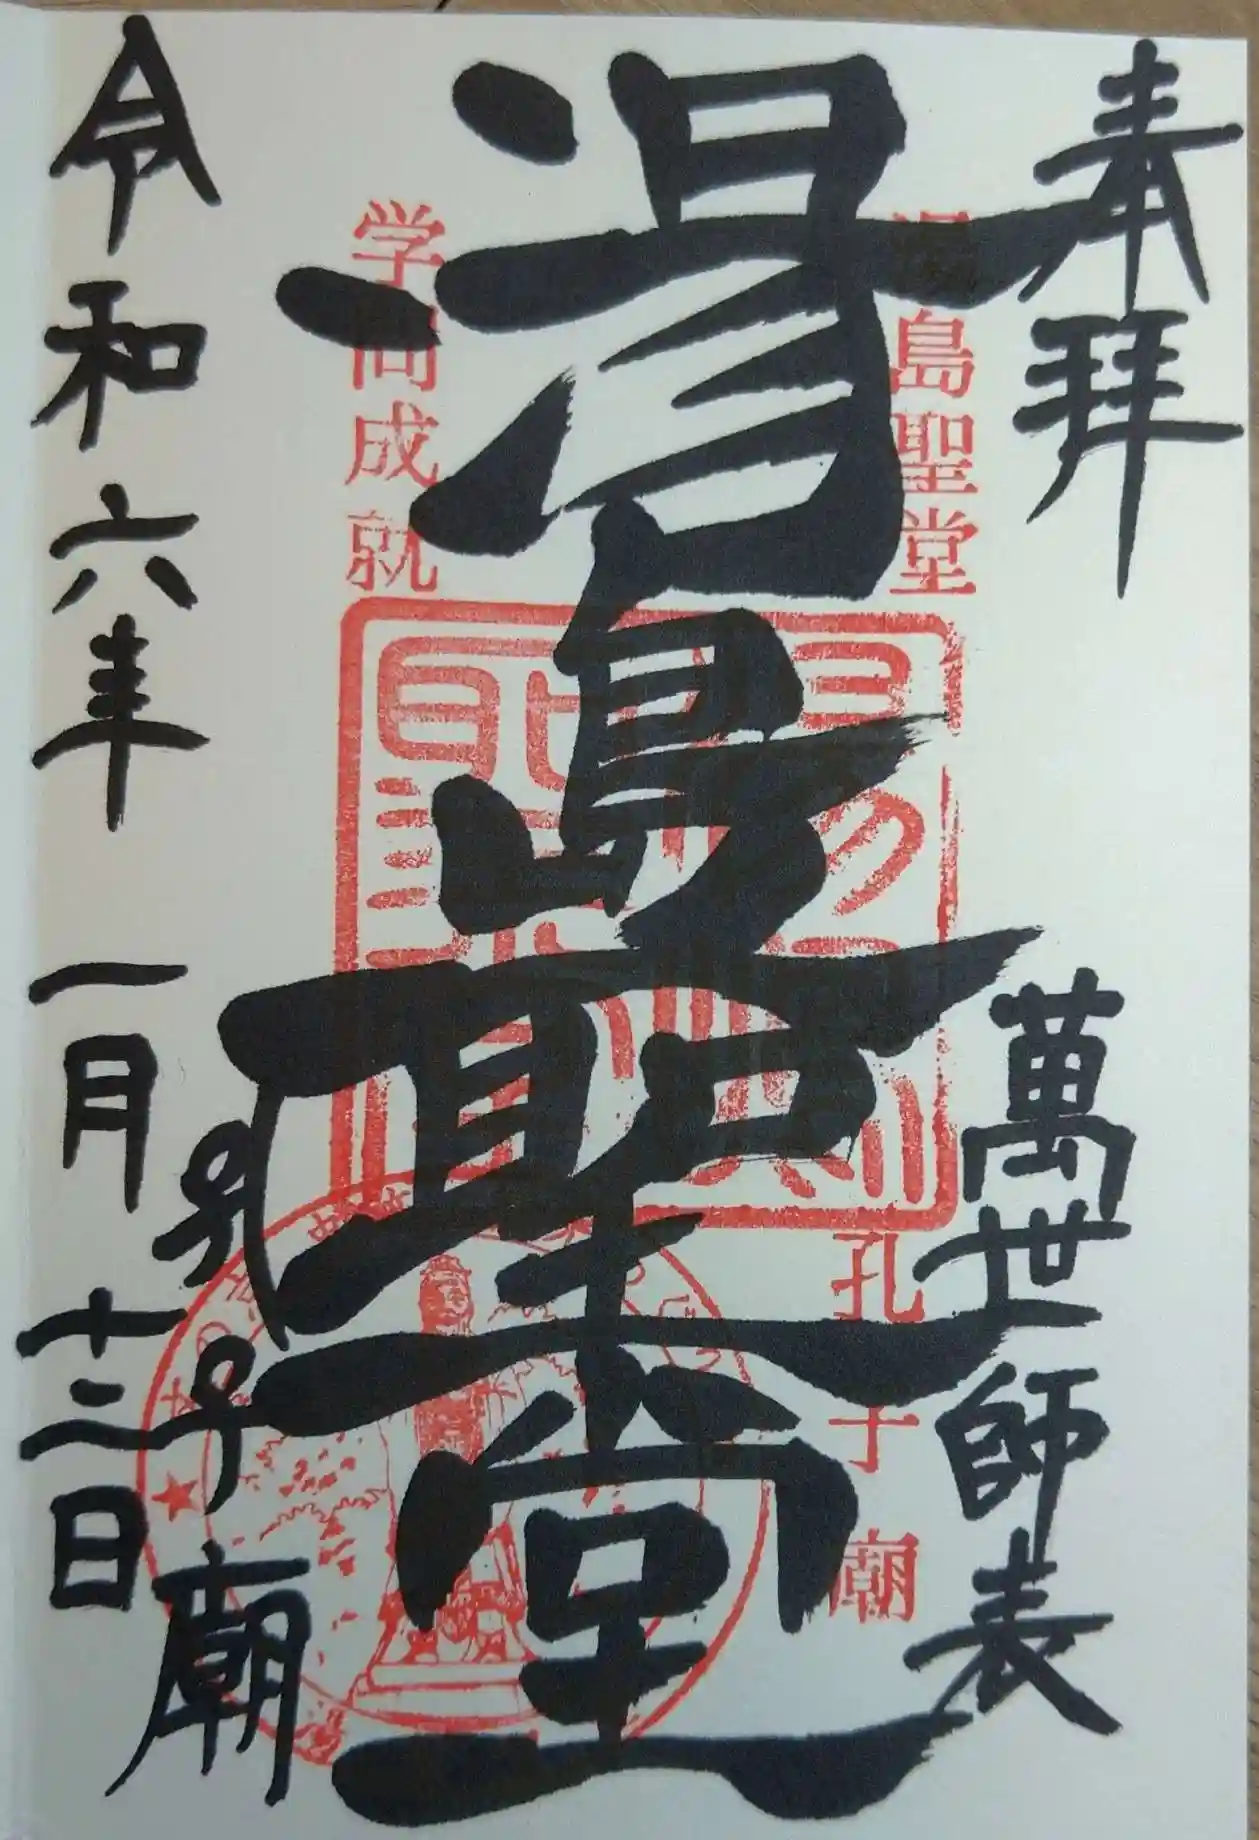 奉拝
萬世師表
湯島聖堂
孔子廟
湯島聖堂
学問成就
孔子廟
令和六年一月十三日